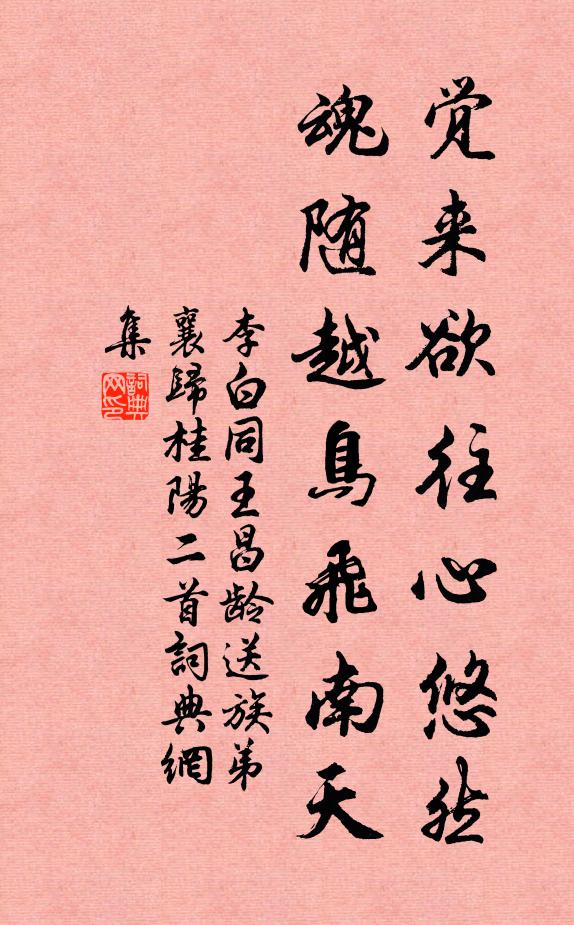 觉来欲往心悠然
魂随越鳥飛南天
李白同王昌龄送族弟
襄歸桂陽二首詞典網
集
詞典
网印